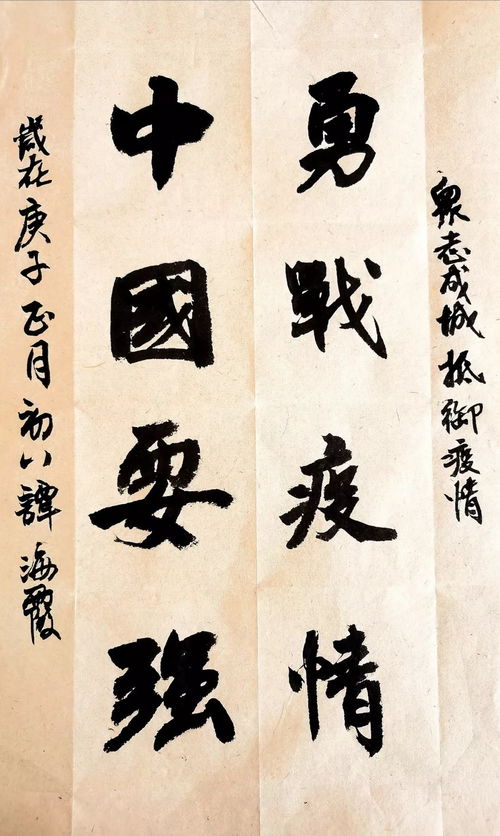 眾志成城抵御疫情
勇戰疫情
中國要强
歲在庚子正月初八譚海霞